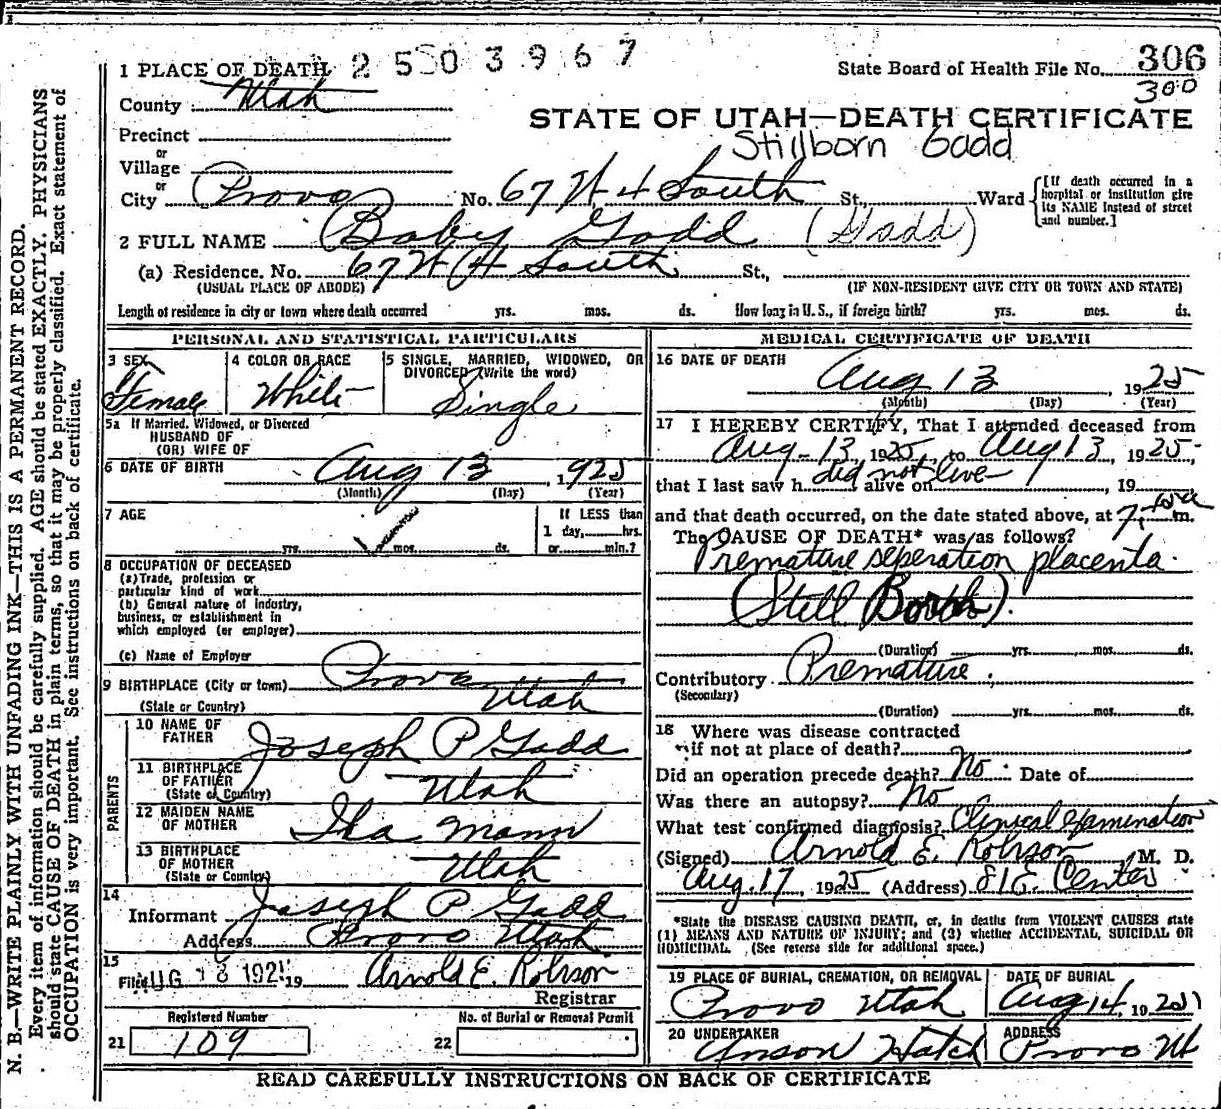 2 5 0 3 9 6 7
State Board of Health File No. 306
300
1 PLACE OF DEATH
County Utah
STATE OF UTAH—DEATH CERTIFICATE
Stillborn Gadd
Precinct
or
Village
or
City Provo No. 67 W 4 South St., Ward [If death occurred in a hospital or institution give its NAME instead of street and number.]
2 FULL NAME Baby Gadd (Gadd)
(a) Residence. No. 67 W 4 South St.,
(USUAL PLACE OF ABODE) (IF NON-RESIDENT GIVE CITY OR TOWN AND STATE)
Length of residence in city or town where death occurred yrs. mos. ds. How long in U. S., if foreign birth? yrs. mos. ds.
PERSONAL AND STATISTICAL PARTICULARS
3 SEX
Female
4 COLOR OR RACE
White
5 SINGLE, MARRIED, WIDOWED, OR
DIVORCED (Write the word)
Single
5a If Married, Widowed, or Divorced
HUSBAND OF
(OR) WIFE OF
6 DATE OF BIRTH Aug 13, 1925
(Month) (Day) (Year)
7 AGE
yrs. mos. ds.
If LESS than
1 day, hrs.
or min.?
8 OCCUPATION OF DECEASED
(a) Trade, profession or
particular kind of work
(b) General nature of industry,
business, or establishment in
which employed (or employer)
(c) Name of Employer
9 BIRTHPLACE (City or town) Provo
(State or Country) Utah
PARENTS
10 NAME OF
FATHER Joseph P Gadd
11 BIRTHPLACE
OF FATHER
(State or Country) Utah
12 MAIDEN NAME
OF MOTHER Iha Mann
13 BIRTHPLACE
OF MOTHER
(State or Country) Utah
14
Informant Joseph P Gadd
Address Provo Utah
15
Filed AUG 18 1925 19 Arnold E. Robison
Registrar
Registered Number
21 109
No. of Burial or Removal Permit
22
MEDICAL CERTIFICATE OF DEATH
16 DATE OF DEATH
Aug 13, 1925
(Month) (Day) (Year)
17 I HEREBY CERTIFY, That I attended deceased from
Aug-13, 1925, to Aug 13, 1925,
that I last saw h did not live alive on, 19
and that death occurred, on the date stated above, at 7, m.
The CAUSE OF DEATH* was as follows?
Premature seperation placenta
(Still Born).
(Duration) yrs. mos. ds.
Contributory Premature.
(Secondary)
(Duration) yrs. mos. ds.
18 Where was disease contracted
if not at place of death?
Did an operation precede death? No Date of
Was there an autopsy? No
What test confirmed diagnosis? Clinical examination
(Signed) Arnold E. Robison, M. D.
Aug. 17, 1925 (Address) 81 E. Center
*State the DISEASE CAUSING DEATH, or, in deaths from VIOLENT CAUSES state
(1) MEANS AND NATURE OF INJURY; and (2) whether ACCIDENTAL, SUICIDAL OR
HOMICIDAL. (See reverse side for additional space.)
19 PLACE OF BURIAL, CREMATION, OR REMOVAL
Provo Utah
DATE OF BURIAL
Aug 14, 19
20 UNDERTAKER
Anson Hatch
ADDRESS
Provo Ut
READ CAREFULLY INSTRUCTIONS ON BACK OF CERTIFICATE
N. B.—WRITE PLAINLY WITH UNFADING INK—THIS IS A PERMANENT RECORD.
Every item of information should be carefully supplied. AGE should be stated EXACTLY. PHYSICIANS
should state CAUSE OF DEATH in plain terms, so that it may be properly classified. Exact statement of
OCCUPATION is very important. See instructions on back of certificate.